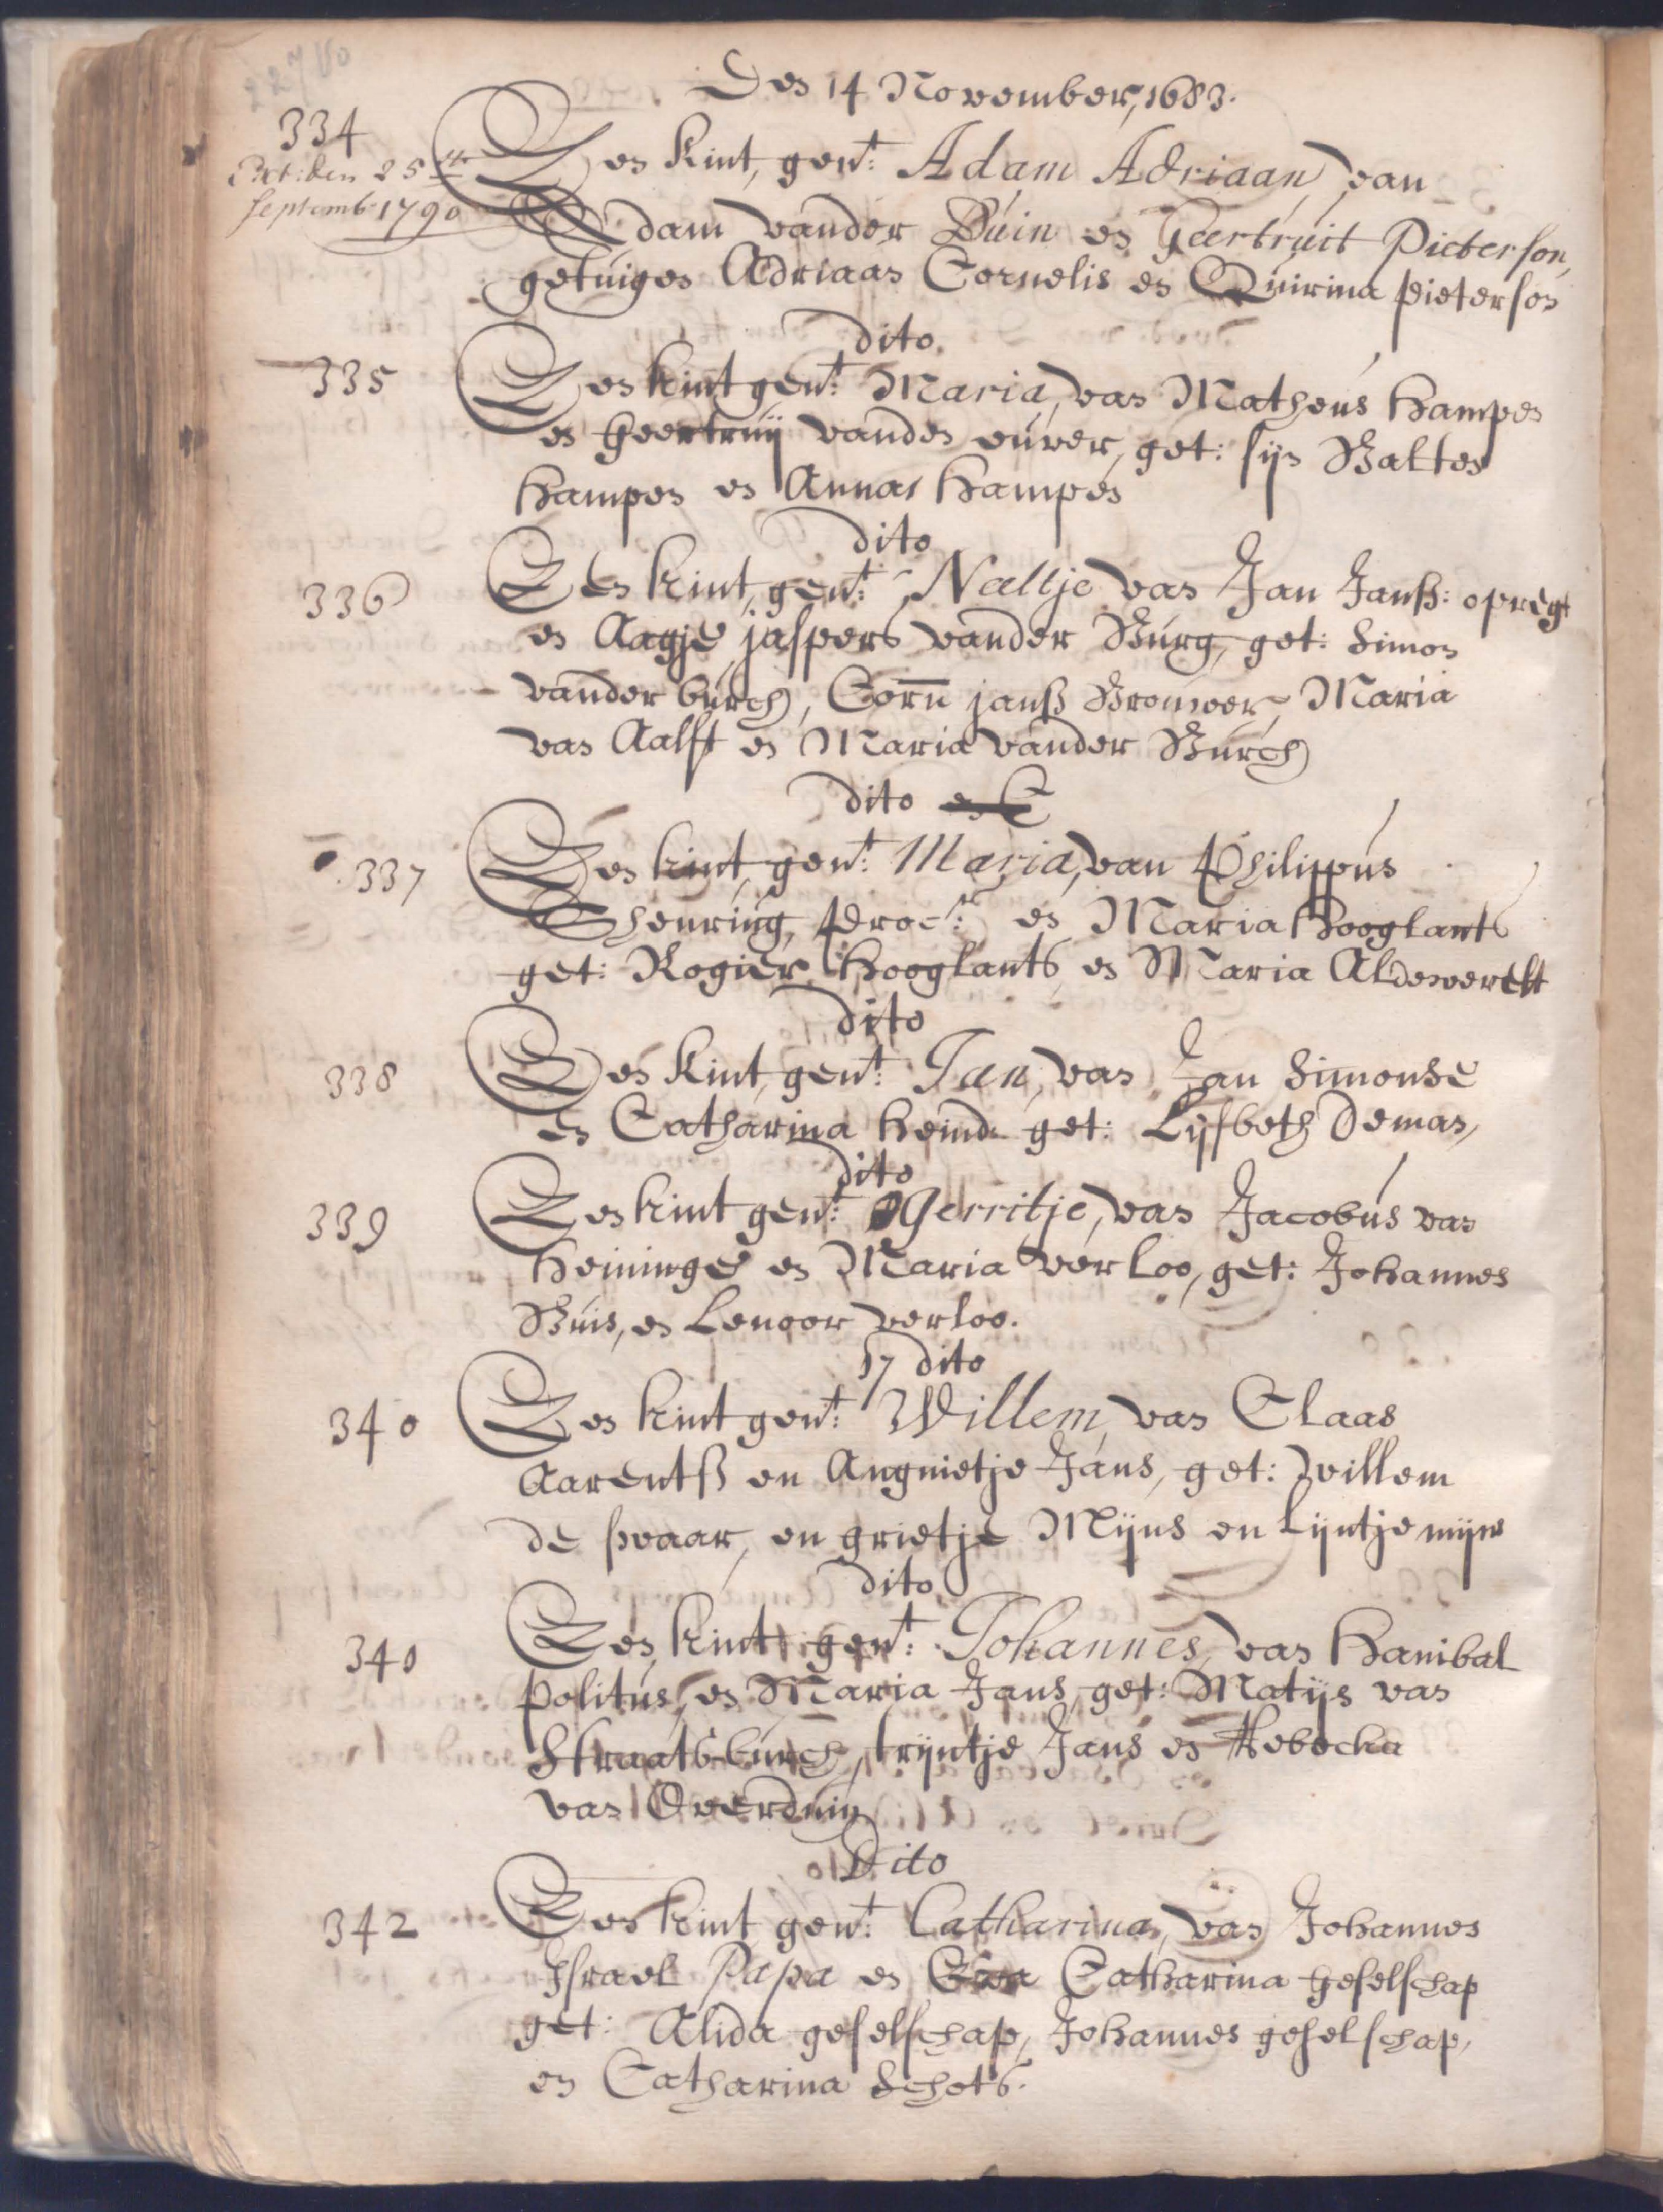 227 vo
Den 14 November, 1683.
334
Ext: den 25ste
septemb 1790
Een kint, gent: Adam Adriaan, van
Adam vander Duin en Geertruit Pieterson,
getuigen Adriaan Cornelis en Quirina pieterson
dito.
335
Een kint gent: Maria, van Matheus Hampen
en Geertruij vanden euver, get: sijn Balten
Hampen en Anna Hampen
dito
336
Een kint, gent: Neeltje van Jan Janss: opregt
en Aagje jaspers vander Burg, get: Simon
vander burch, Corn janss Brouwer, Maria
van Aalst en Maria vander Burch
dito
337
Een kint, gent: Maria, van Philippus
Sheuring, Procr: en Maria Hooglants
get: Rogier Hooglants en Maria Aldewerelt
dito
338
Een kint, gent: Jan, van Jan Simonse
en Catharina Heind. get: Lijsbeth Deman,
dito
339
Een kint gent: Gerritje, van Jacobus van
Heininge en Maria verloo, get: Johannes
Buis, en Lenoor verloo.
17 dito
340
Een kint gent: Willem, van Claas
Aarentss en Angnietje Jans, get: Willem
de swaar, en grietje Mijns en Lijntje mijns
dito
340
Een kint gent: Johannes, van Hanibal
politus, en Maria Jans, get: Matijs van
Straatsburch, trijntje Jans en Rebecka
van Overduin
Dito
342
Een kint gent: Catharina, van Johannes
Israel Papa en Eva Catharina geselschap
get: Alida geselschap, Johannes geselschap,
en Catharina Schots.